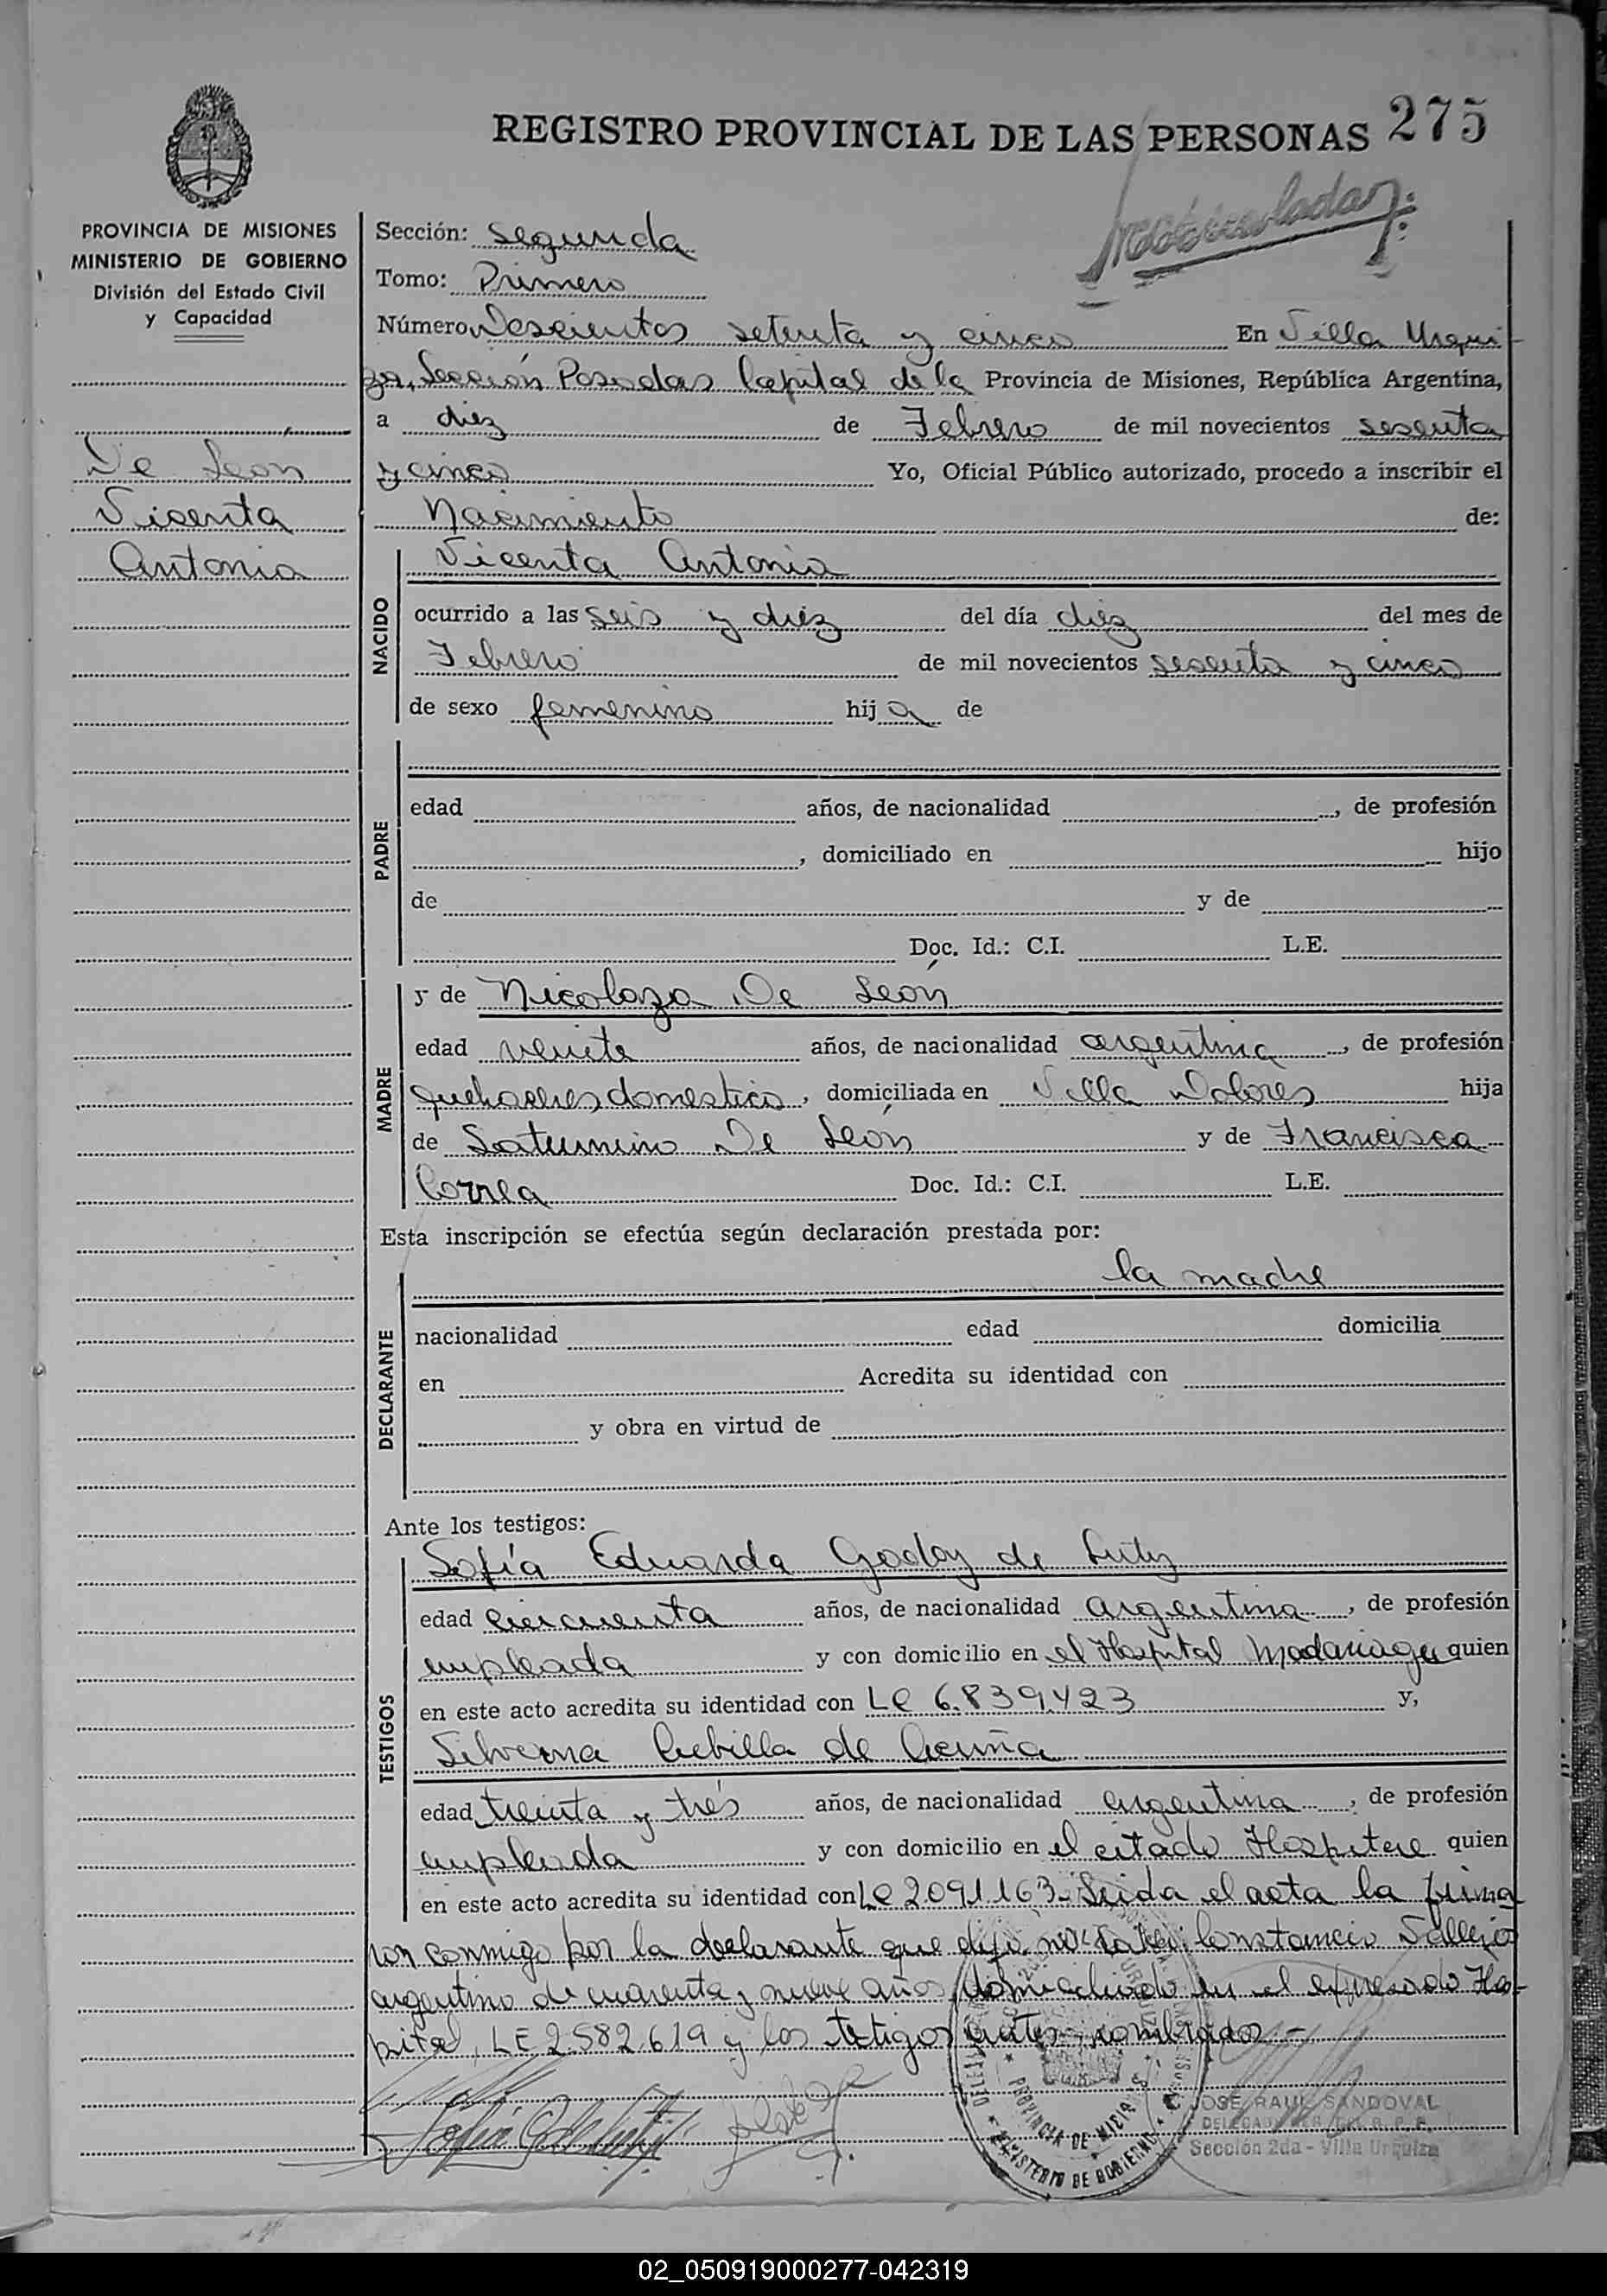 REGISTRO PROVINCIAL DE LAS PERSONAS 275
PROVINCIA DE MISIONES
MINISTERIO DE GOBIERNO
División del Estado Civil
y Capacidad
De Leon
Vicenta
Antonia
Sección: Segunda
Tomo: Primero
Número Doscientos setenta y cinco En Villa Urqui
za, Sección Posadas Capital de la Provincia de Misiones, República Argentina,
a diez de Febrero de mil novecientos sesenta
y cinco Yo, Oficial Público autorizado, procedo a inscribir el
Nacimiento de:
NACIDO
Vicenta Antonia
ocurrido a las seis y diez del día diez del mes de
Febrero de mil novecientos sesenta y cinco
de sexo femenino hij a de
PADRE
edad años, de nacionalidad , de profesión
, domiciliado en hijo
de y de
Doc. Id.: C.I. L.E.
MADRE
y de Nicolaza De León
edad veinte años, de nacionalidad argentina, de profesión
quehaceres domestico, domiciliada en Villa Dolores hija
de Saturnino De León y de Francisca
Correa Doc. Id.: C.I. L.E.
Esta inscripción se efectúa según declaración prestada por:
DECLARANTE
la madre
nacionalidad edad domicilia
en Acredita su identidad con
y obra en virtud de
Ante los testigos:
TESTIGOS
Sofía Eduarda Godoy de
edad cincuenta años, de nacionalidad argentina, de profesión
empleada y con domicilio en el Hospital Madariaga quien
en este acto acredita su identidad con LE 6.839.423 y,
Silveria Cubilla de Acuña
edad treinta y trés años, de nacionalidad argentina, de profesión
empleada y con domicilio en el citado Hospital quien
en este acto acredita su identidad con LE 2.091.163. Leida el acta la firma
ron conmigo por la declarante que dijo no Constancio Vallejos
argentino de cuarenta y nueve años domiciliado en el expresado Hos
pital, LE 2.582.619 y los testigos antes nombrados -
PROVINCIA DE MISIONES
MINISTERIO DE GOBIERNO
JOSE RAUL SANDOVAL
Sección 2da - Villa Urquiza
02_050919000277-042319